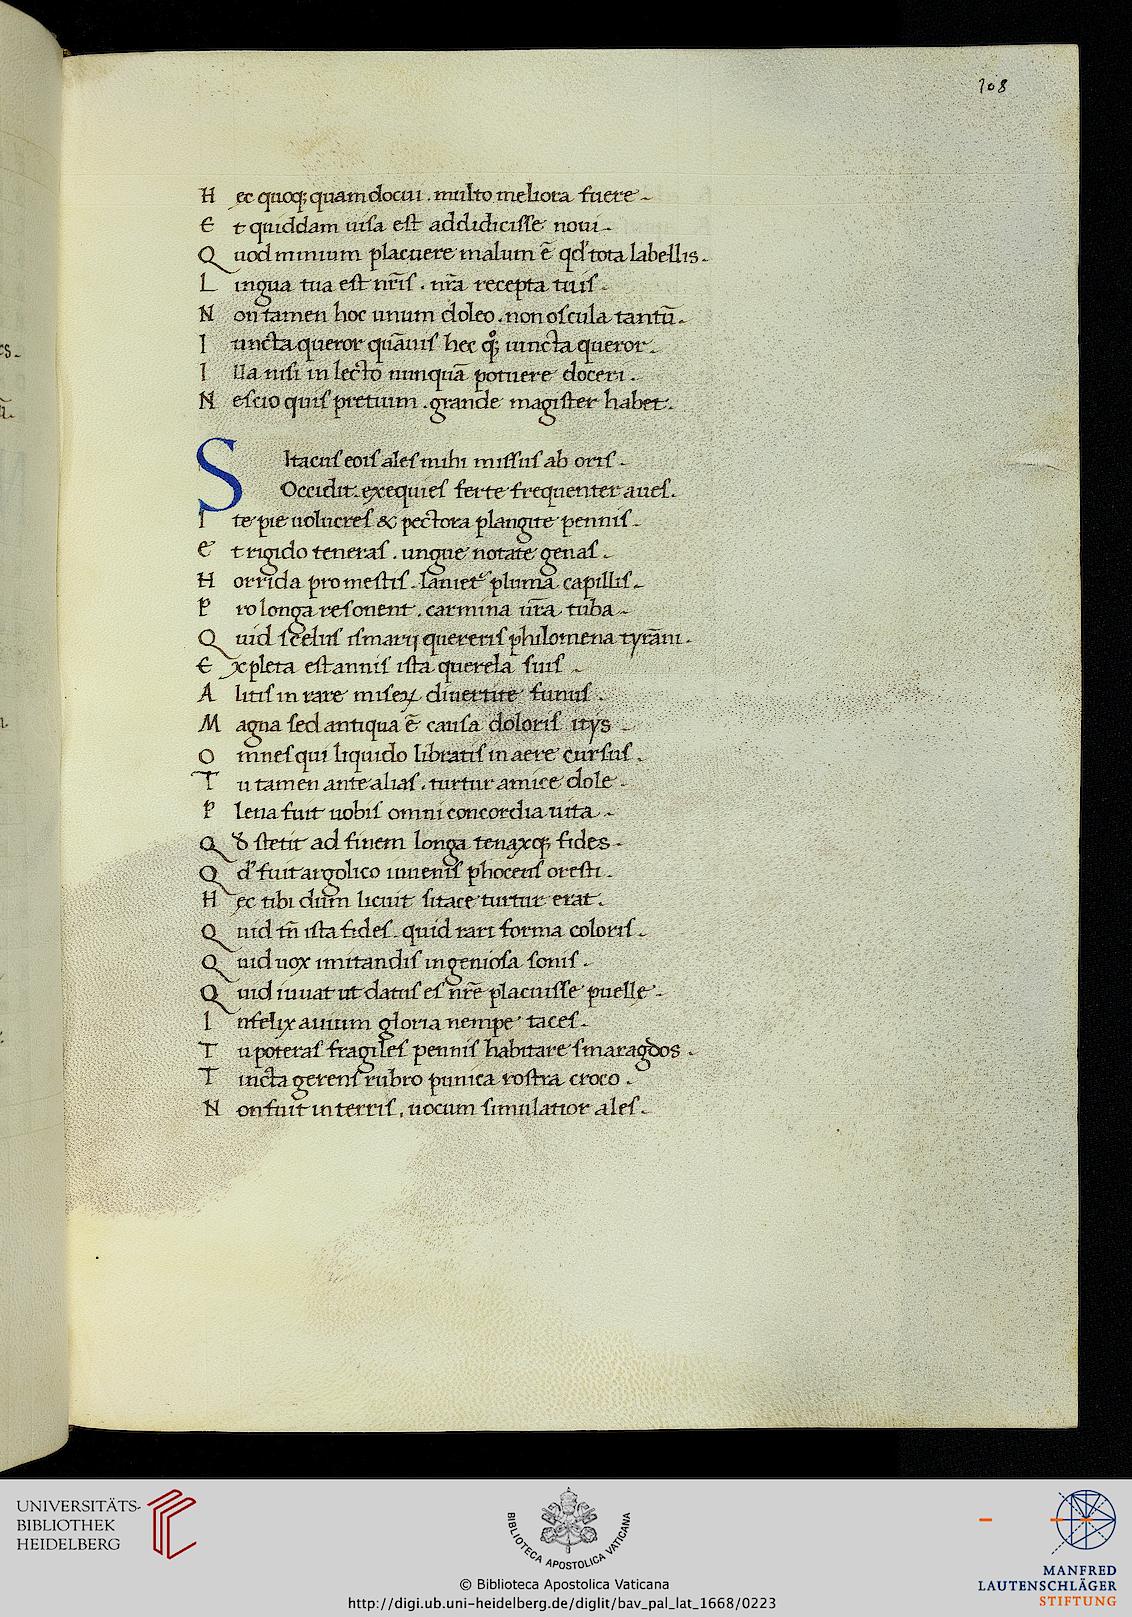 108
H ec quoq; quam docui . multo meliora fuere .
E t quiddam uisa est addidicisse noui .
Q uod minium placuere malum ē qđ tota labellis .
L ingua tua est nr̄is . nr̄a recepta tuis .
N on tamen hoc unum doleo . non oscula tantū .
I uncta queror quāuis hec qͦq; iuncta queror .
I lla nisi in lecto nunquā potuere doceri .
N escio quis pretium . grande magister habet .
S Itacus eois ales mihi missus ab oris .
Occidit . exequies ferte frequenter aues .
I te pie uolucres & pectora plangite pennis .
E t rigido teneras . ungue notate genas .
H orrida pro mestis . lanietᷣ pluma capillis .
P ro longa resonent . carmina ur̄a tuba .
Q uid scelus ismarij quereris philomena tyrāni .
E xpleta est annis ista querela suis .
A litis in rare miseꝝ diuertite funus .
M agna sed antiqua ē causa doloris itys
O mnes qui liquido libratis in aere cursus .
T u tamen ante alias . turtur amice dole .
P lena fuit uobis omni concordia uita .
Q đ stetit ad finem longa tenaxq; fides .
Q đ fuit argolico iuuenis phoceus oresti .
H ec tibi dum licuit sitace turtur erat .
Q uid tn̄ ista fides . quid rari forma coloris .
Q uid uox imitandis ingeniosa sonis .
Q uid iuuat ut datus es nr̄e placuisse puelle .
I nfelix auium gloria nempe taces .
T u poteras fragiles pennis habitare smaragdos .
T incta gerens rubro punica rostra croco .
N on fuit in terris , uocum simulatior ales .
UNIVERSITÄTS-
BIBLIOTHEK
HEIDELBERG
BIBLIOTECA APOSTOLICA VATICANA
MANFRED
LAUTENSCHLÄGER
STIFTUNG
© Biblioteca Apostolica Vaticana
http://digi.ub.uni-heidelberg.de/diglit/bav_pal_lat_1668/0223